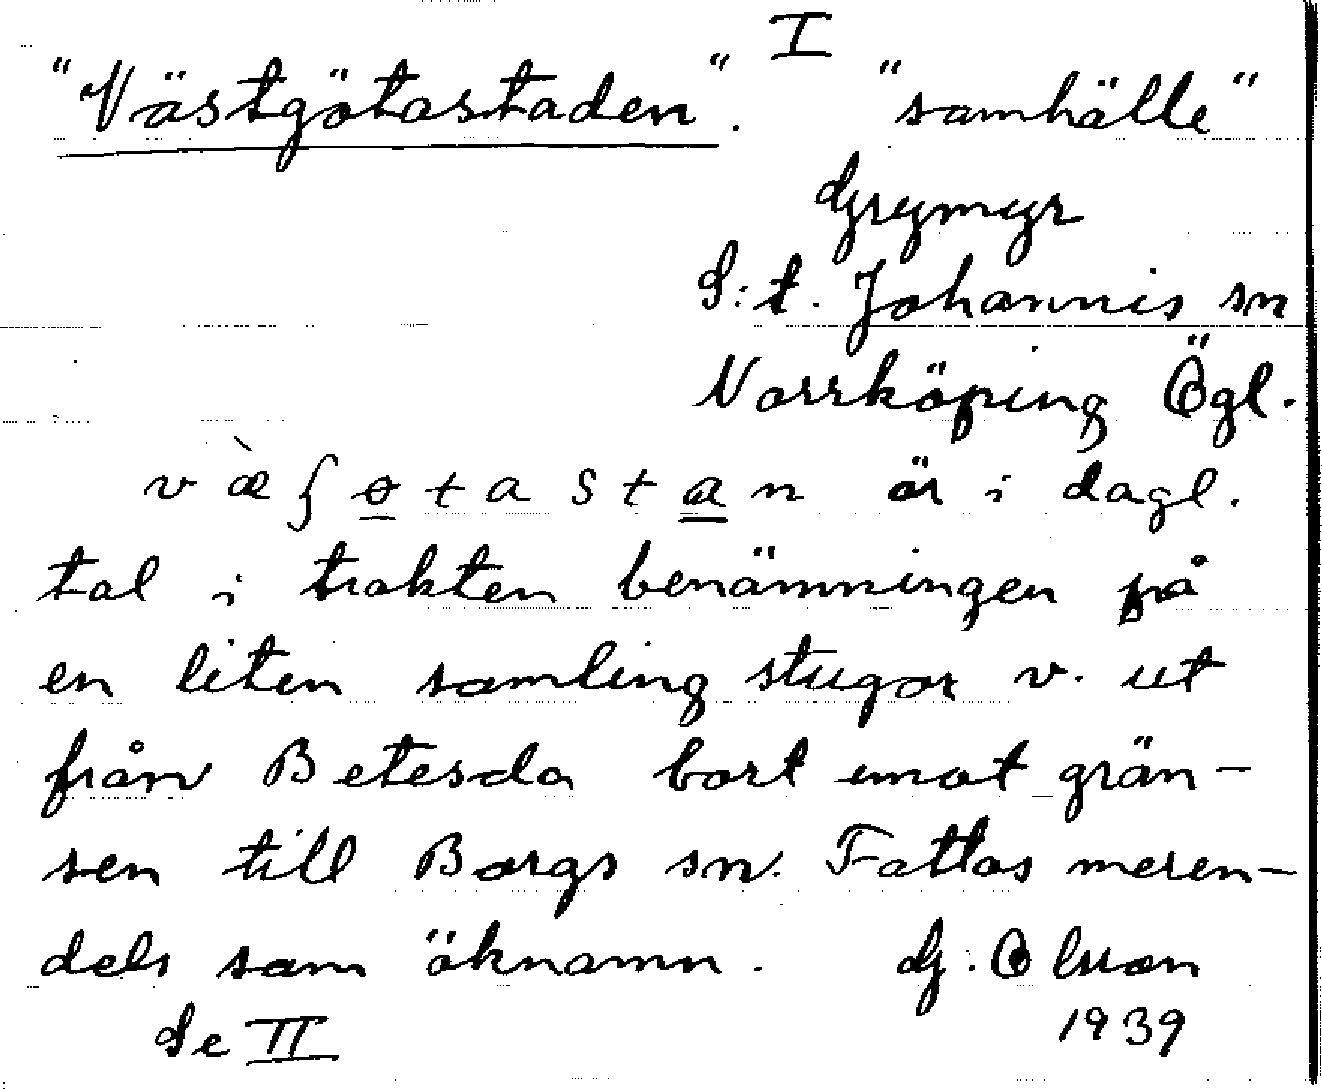 I
"Västgötastaden". "samhälle"
Grymyr
S:t. Johannis sn
Norrköping Ögl.
v æ̀ ʃ ɵ t a s t a n är i dagl.
tal i trakten benämningen på
en liten samling stugor v. ut
från Betesda bort emot grän-
sen till Borgs sn. Fattas meren-
dels som öknamn. G. Olsson
Se II 1939